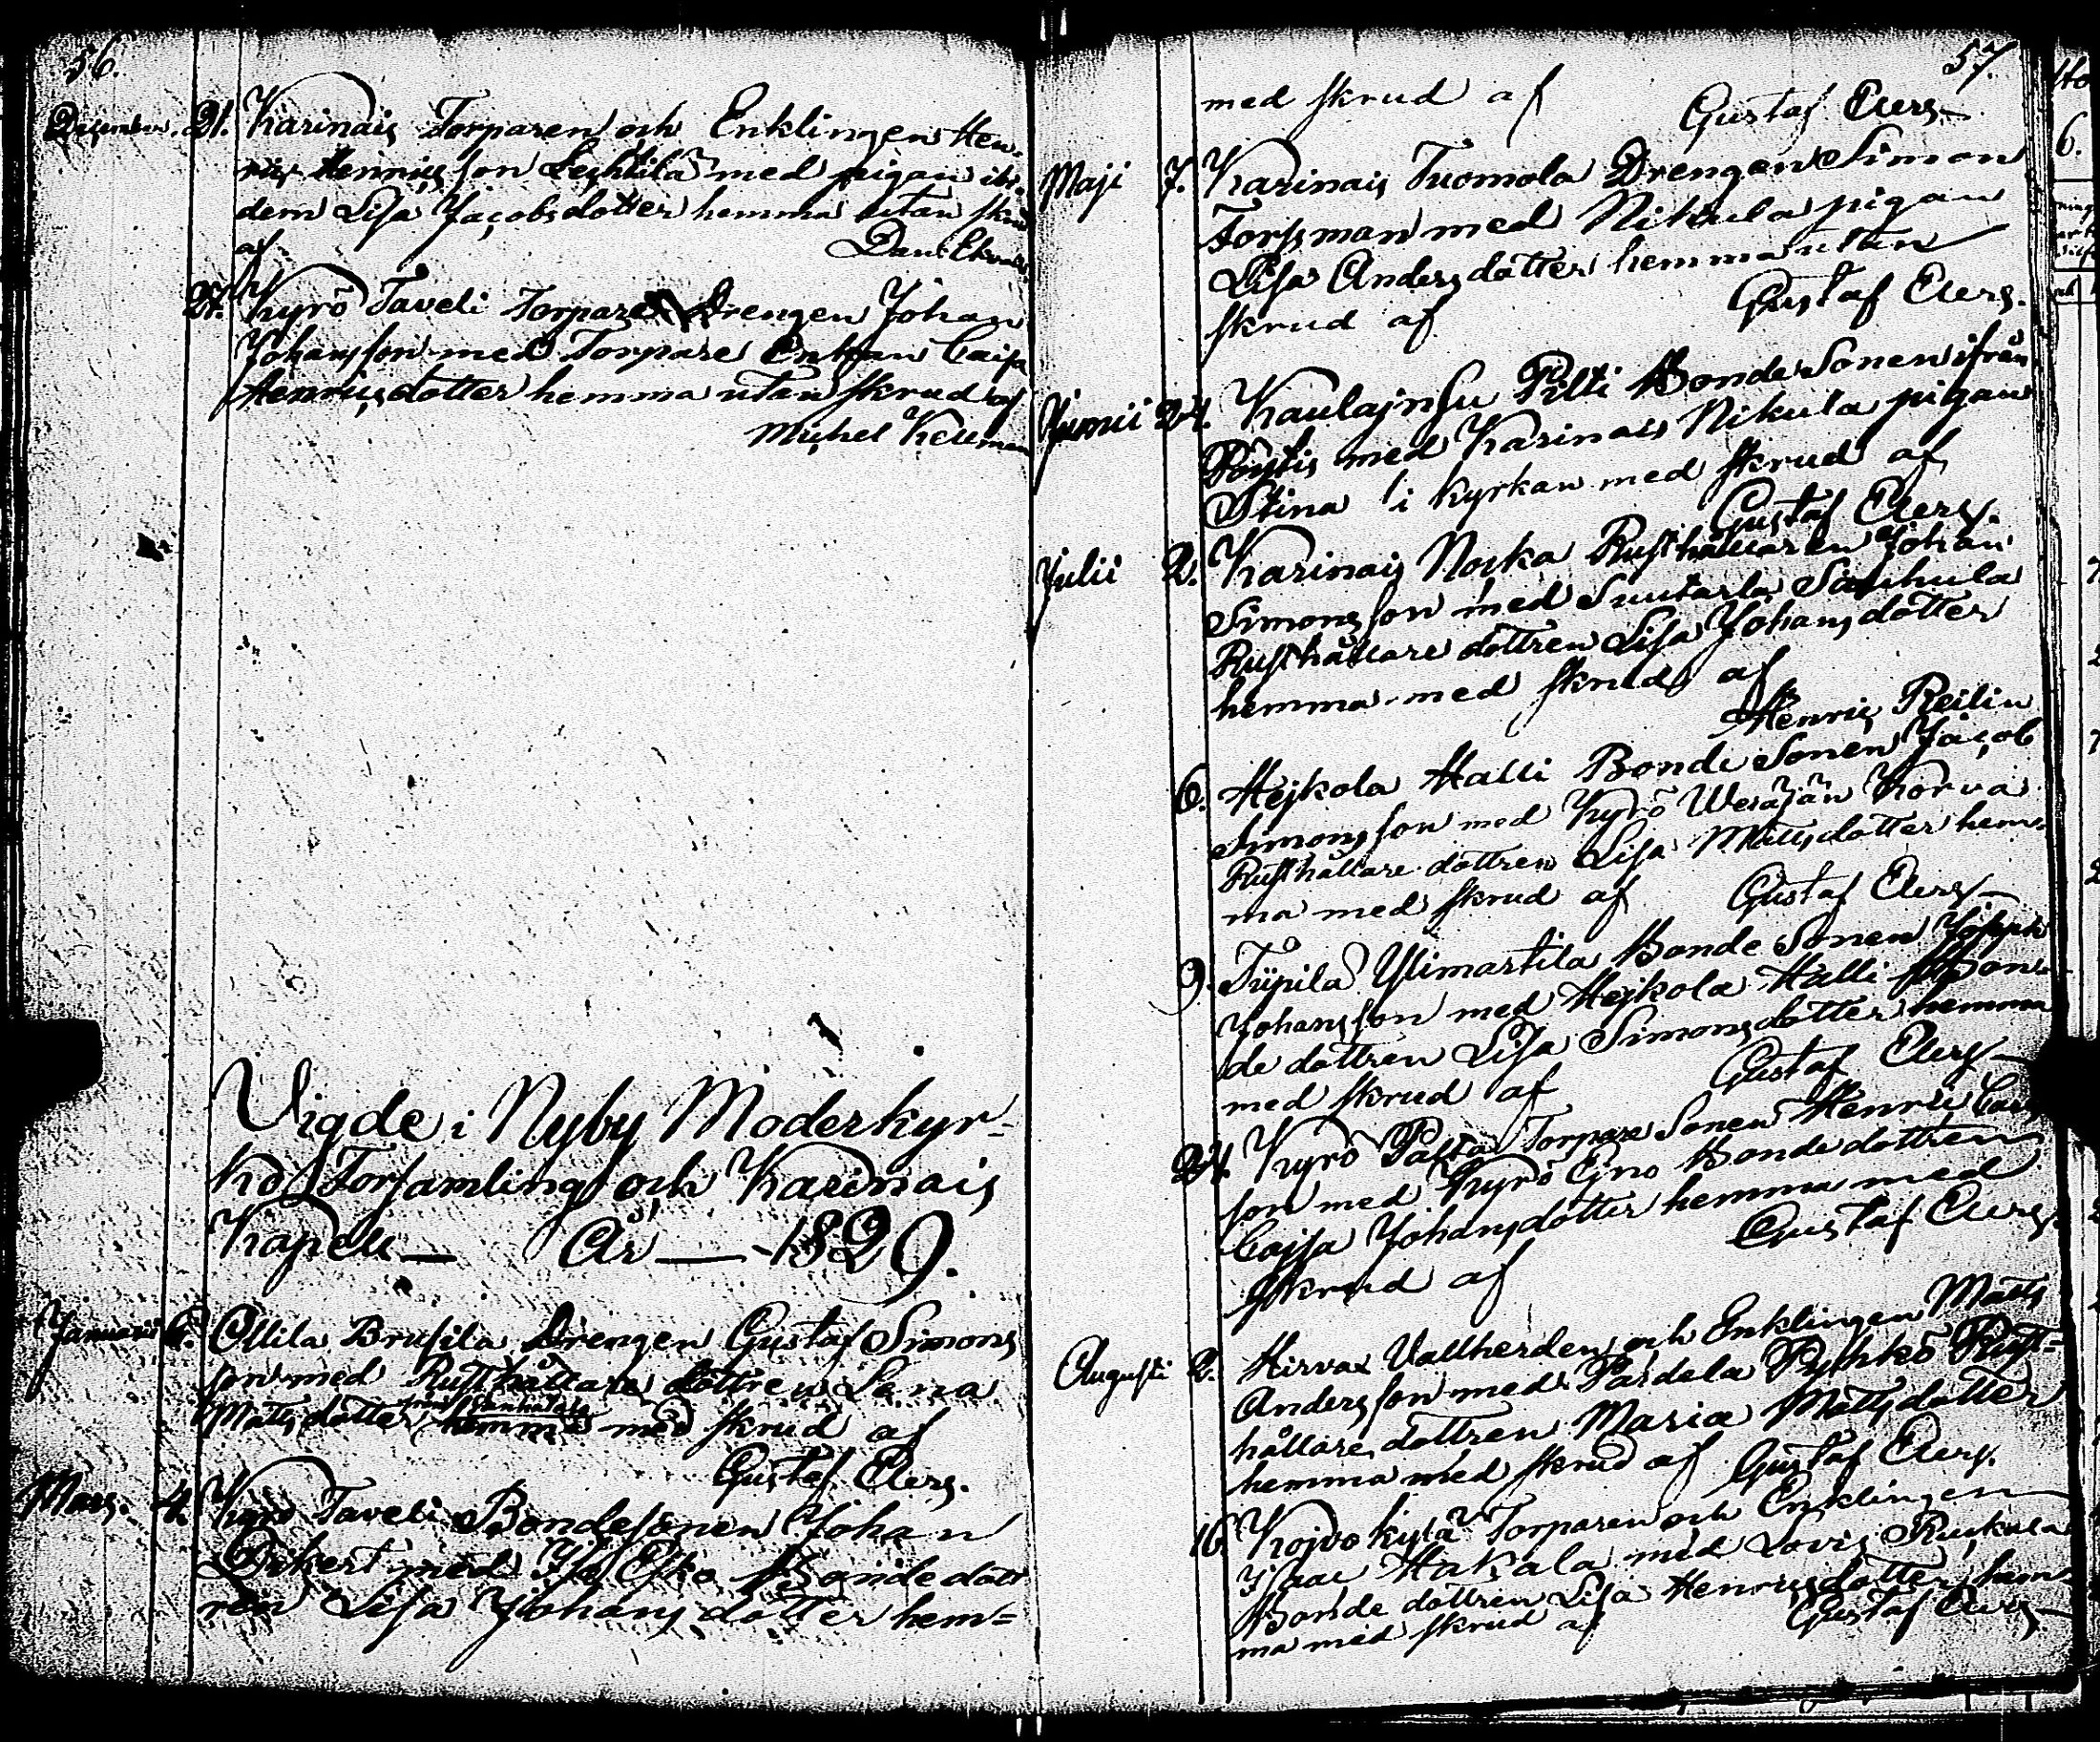 56.
December. 21. Karinais Torparen och Enklingen Hen-
ric Henricsson Lechtila med pigan ibi-
dem Lisa Jacobsdotter hemma utan skrud
af
27. Kyrö Taveli Torpare Drengen Johan
Johansson med Torpare Enkan Caisa
Henricsdotter hemma utan skrud af
Michel Kellman
Vigde i Nyby Moderkyr-
ko Församling och Karinais
Kapell — År — 1829.
Januarii 6. Ollila Brusila Drengen Gustaf Simons
son med Rusthållare dottren Lena
Mattsdotter hemma med skrud af
Gustaf Elers.
Mars. 4. Kyrö Taveli Bondesonen Johan
med Esko Bonde dott
ren Lisa Johansdotter hem=
57.
med skrud af
Gustaf Elers
Maji 7. Karinais Tuomola Drengen Simon
Forssman med Nikula pigan
Lisa Andersdotter hemma utan
skrud af
Gustaf Elers.
Junii 24. Kaulajnsu Pilti Bonde Sonen ifrån
Pöytis med Karinais Nikula pigan
Stina i kyrkan med skrud af
Gustaf Elers.
Julii 2. Karinais Noska Rusthållaren Johan
Simonsson med Suutarla Sauhula
Rusthållare dottren Lisa Johansdotter
hemma med skrud af
Henric Reilin
6. Hejkola Halli Bonde Sonen Jacob
Simonsson med Kyrö Wesäjän Korva
Rusthållare dottren Lisa Mattsdotter hem-
ma med skrud af Gustaf Elers
9. Tüpila Ylimartila Bonde Sonen
Johansson med Hejkola Halli Bon-
de dottren Lisa Simonsdotter hemma
med skrud af Gustaf Elers
24. Kyrö Torpare Sonen Henric
son med Kyrö Ejno Bonde dottren
Cajsa Johansdotter hemma med
skrud af Gustaf Elers
Augusti 2. Hirvax Vallherden och Enklingen Matts
Andersson med Pardela Pyhkö Rust=
hållare dottren Maria Mattsdotter
hemma med skrud af Gustaf Elers.
16. Kojvokylä Torparen och Enklingen
Isaac Hakala med Lovis Ruskala
Bonde dottren Lisa Henricsdotter hem-
ma med skrud af Gustaf Elers